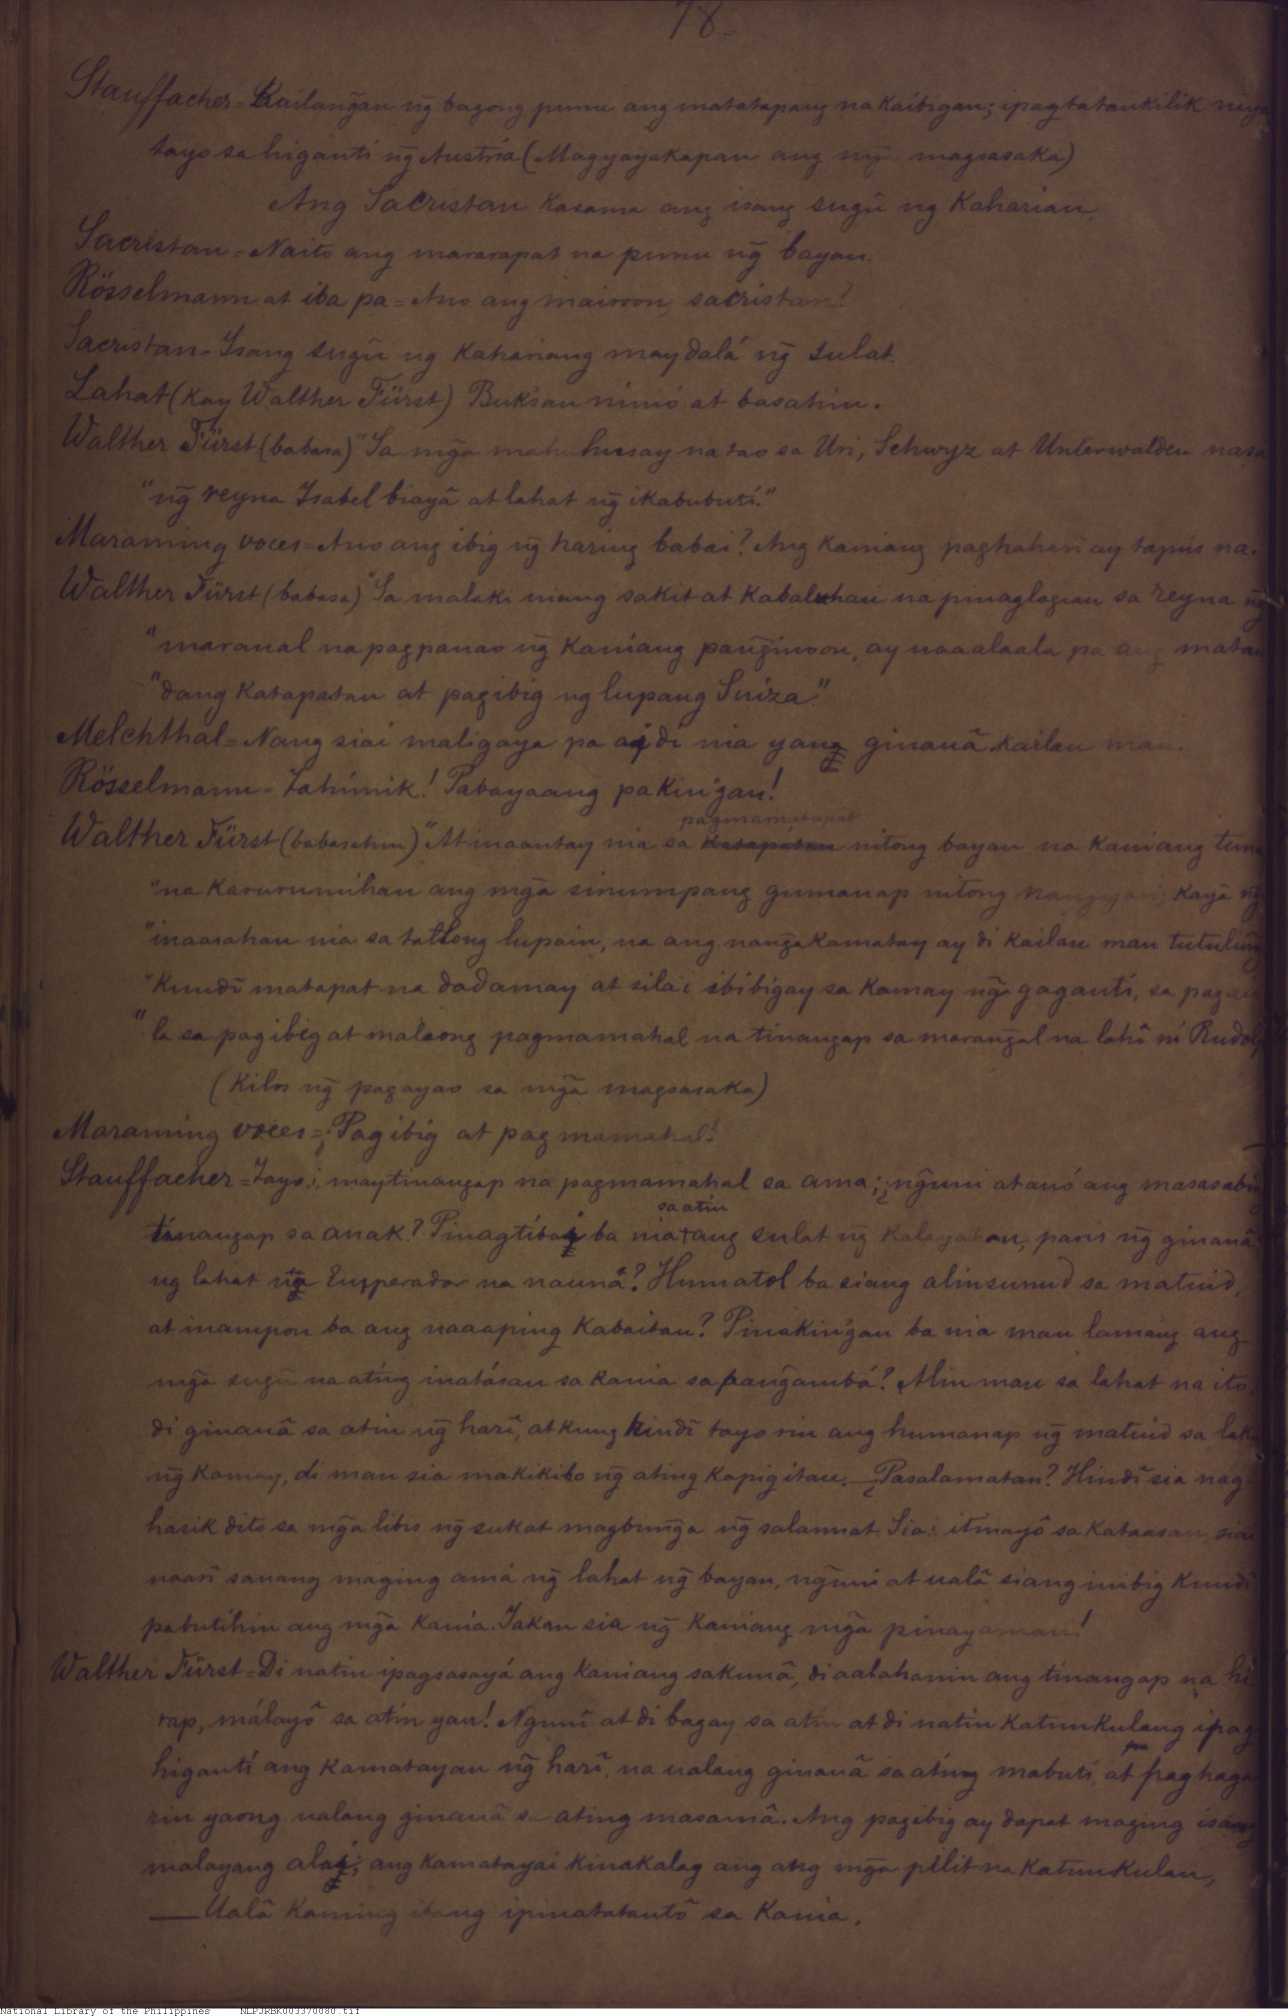 78-
Stauffacher = Kailang̃an ng̃ bagong punu ang matatapang na kaibigan; ipagtatankilik niya
tayo sa higanti ng̃ Austria (Magyayakapan ang mg̃a magsasaka)
Ang Sacristan kasama ang isang sugũ ng Kaharian.
Sacristan = Naito ang mararapat na punu ng̃ bayan.
Rösselmann at iba pa = Ano ang mairoon, sacristan?
Sacristan = Isang sugũ ng kahariang may dalá ng̃ sulat.
Lahat (kay Walther Fürst) Buksan ninió at basahin.
Walther Fürst (babasa) "Sa mg̃a mahuhusay na tao sa Uri, Schwyz at Unterwalden nasa
"ng̃ reyna Isabel biayã at lahat ng̃ ikabubuti."
Maraming voces = Ano ang ibig ng̃ haring babai? Ang kaniang paghahari ay tapus na.
Walther Fürst (babasa) "Sa malaki niang sakit at kabaluhan na pinaglagian sa reyna ng̃
"marang̃al na pagpanao ng̃ kaniang pang̃inoon, ay naaalaala pa ang matan
"dang katapatan at pagibig ng lupang Suiza"
Melchthal = Nang siai maligaya pa ay di nia yang ginauã kailan man.
Rösselmann = Tahimik! Pabayaang pakingan!
pagmamatapat
Walther Fürst (babasahin) "At inaantay nia sa katapatan nitong bayan na kaniang tun
"na karurumihan ang mg̃a sinumpang gumanap nitong nangyari; kayã ng̃
"inaasahan nia sa tatlong lupain, na ang nang̃akamatay ay di kailan man tutulung̃
"kundĩ matapat na dadamay at silai ibibigay sa kamay ng̃ gaganti, sa
"la sa pagibig at malaong pagmamahal na tinangap sa marang̃al na lahĩ ni Rudolf
(Kilos ng̃ pagayao sa mg̃a magsasaka)
Maraming voces = ¡Pagibig at pagmamahal!
Stauffacher = Tayo i, may tinangap na pagmamahal sa ama; ¿ng̃uni at anó ang masasabing
sa atin
tinangap sa anak? Pinagtibay ba nia ang sulat ng̃ kalayahan, paris ng̃ ginauã
ng lahat ng̃ Emperador na naunã? Humatol ba siang alinsunud sa matuid,
at inampon ba ang naaaping kabaitan? Pinakingan ba nia man lamang ang
mg̃a sugũ na ating inatásan sa kania sa pang̃ambá? Alin man sa lahat na ito,
di ginauã sa atin ng̃ harĩ, at kung hindĩ tayo rin ang humanap ng̃ matuid sa laka
ng̃ kamay, di man sia makikibo ng̃ ating kapigitan. — ¿Pasalamatan? Hindĩ sia nag-
hasik dito sa mg̃a libis ng̃ sukat magbung̃a ng̃ salamat. Siai itmayõ sa kataasan, siai
naarĩ sanang maging amá ng̃ lahat ng̃ bayan, ng̃uni at ualã siang inibig kundĩ
pabutihin ang mg̃a kania. Takan sia ng̃ kaniang mg̃a pinayaman!
Walther Fürst = Di natin ipagsasayá ang kaniang sakunã, di aalahanin ang tinangap na hi
rap, málayõ sa atin yan! Ngunĩ at di bagay sa atin at di natin katunkulang ipag
higantí ang kamatayan ng̃ harĩ, na ualang ginauã sa ating mabuti, at pa paghaga
rin yaong ualang ginauã sa ating masamã. Ang pagibig ay dapat maging isang
malayang alay; ang kamatayai kinakalag ang mg̃a pilit na katunkulan,
— Ualã kaming ibang ipinatatantõ sa kania.
National Library of the Philippines NLPJRBK003370080.tif